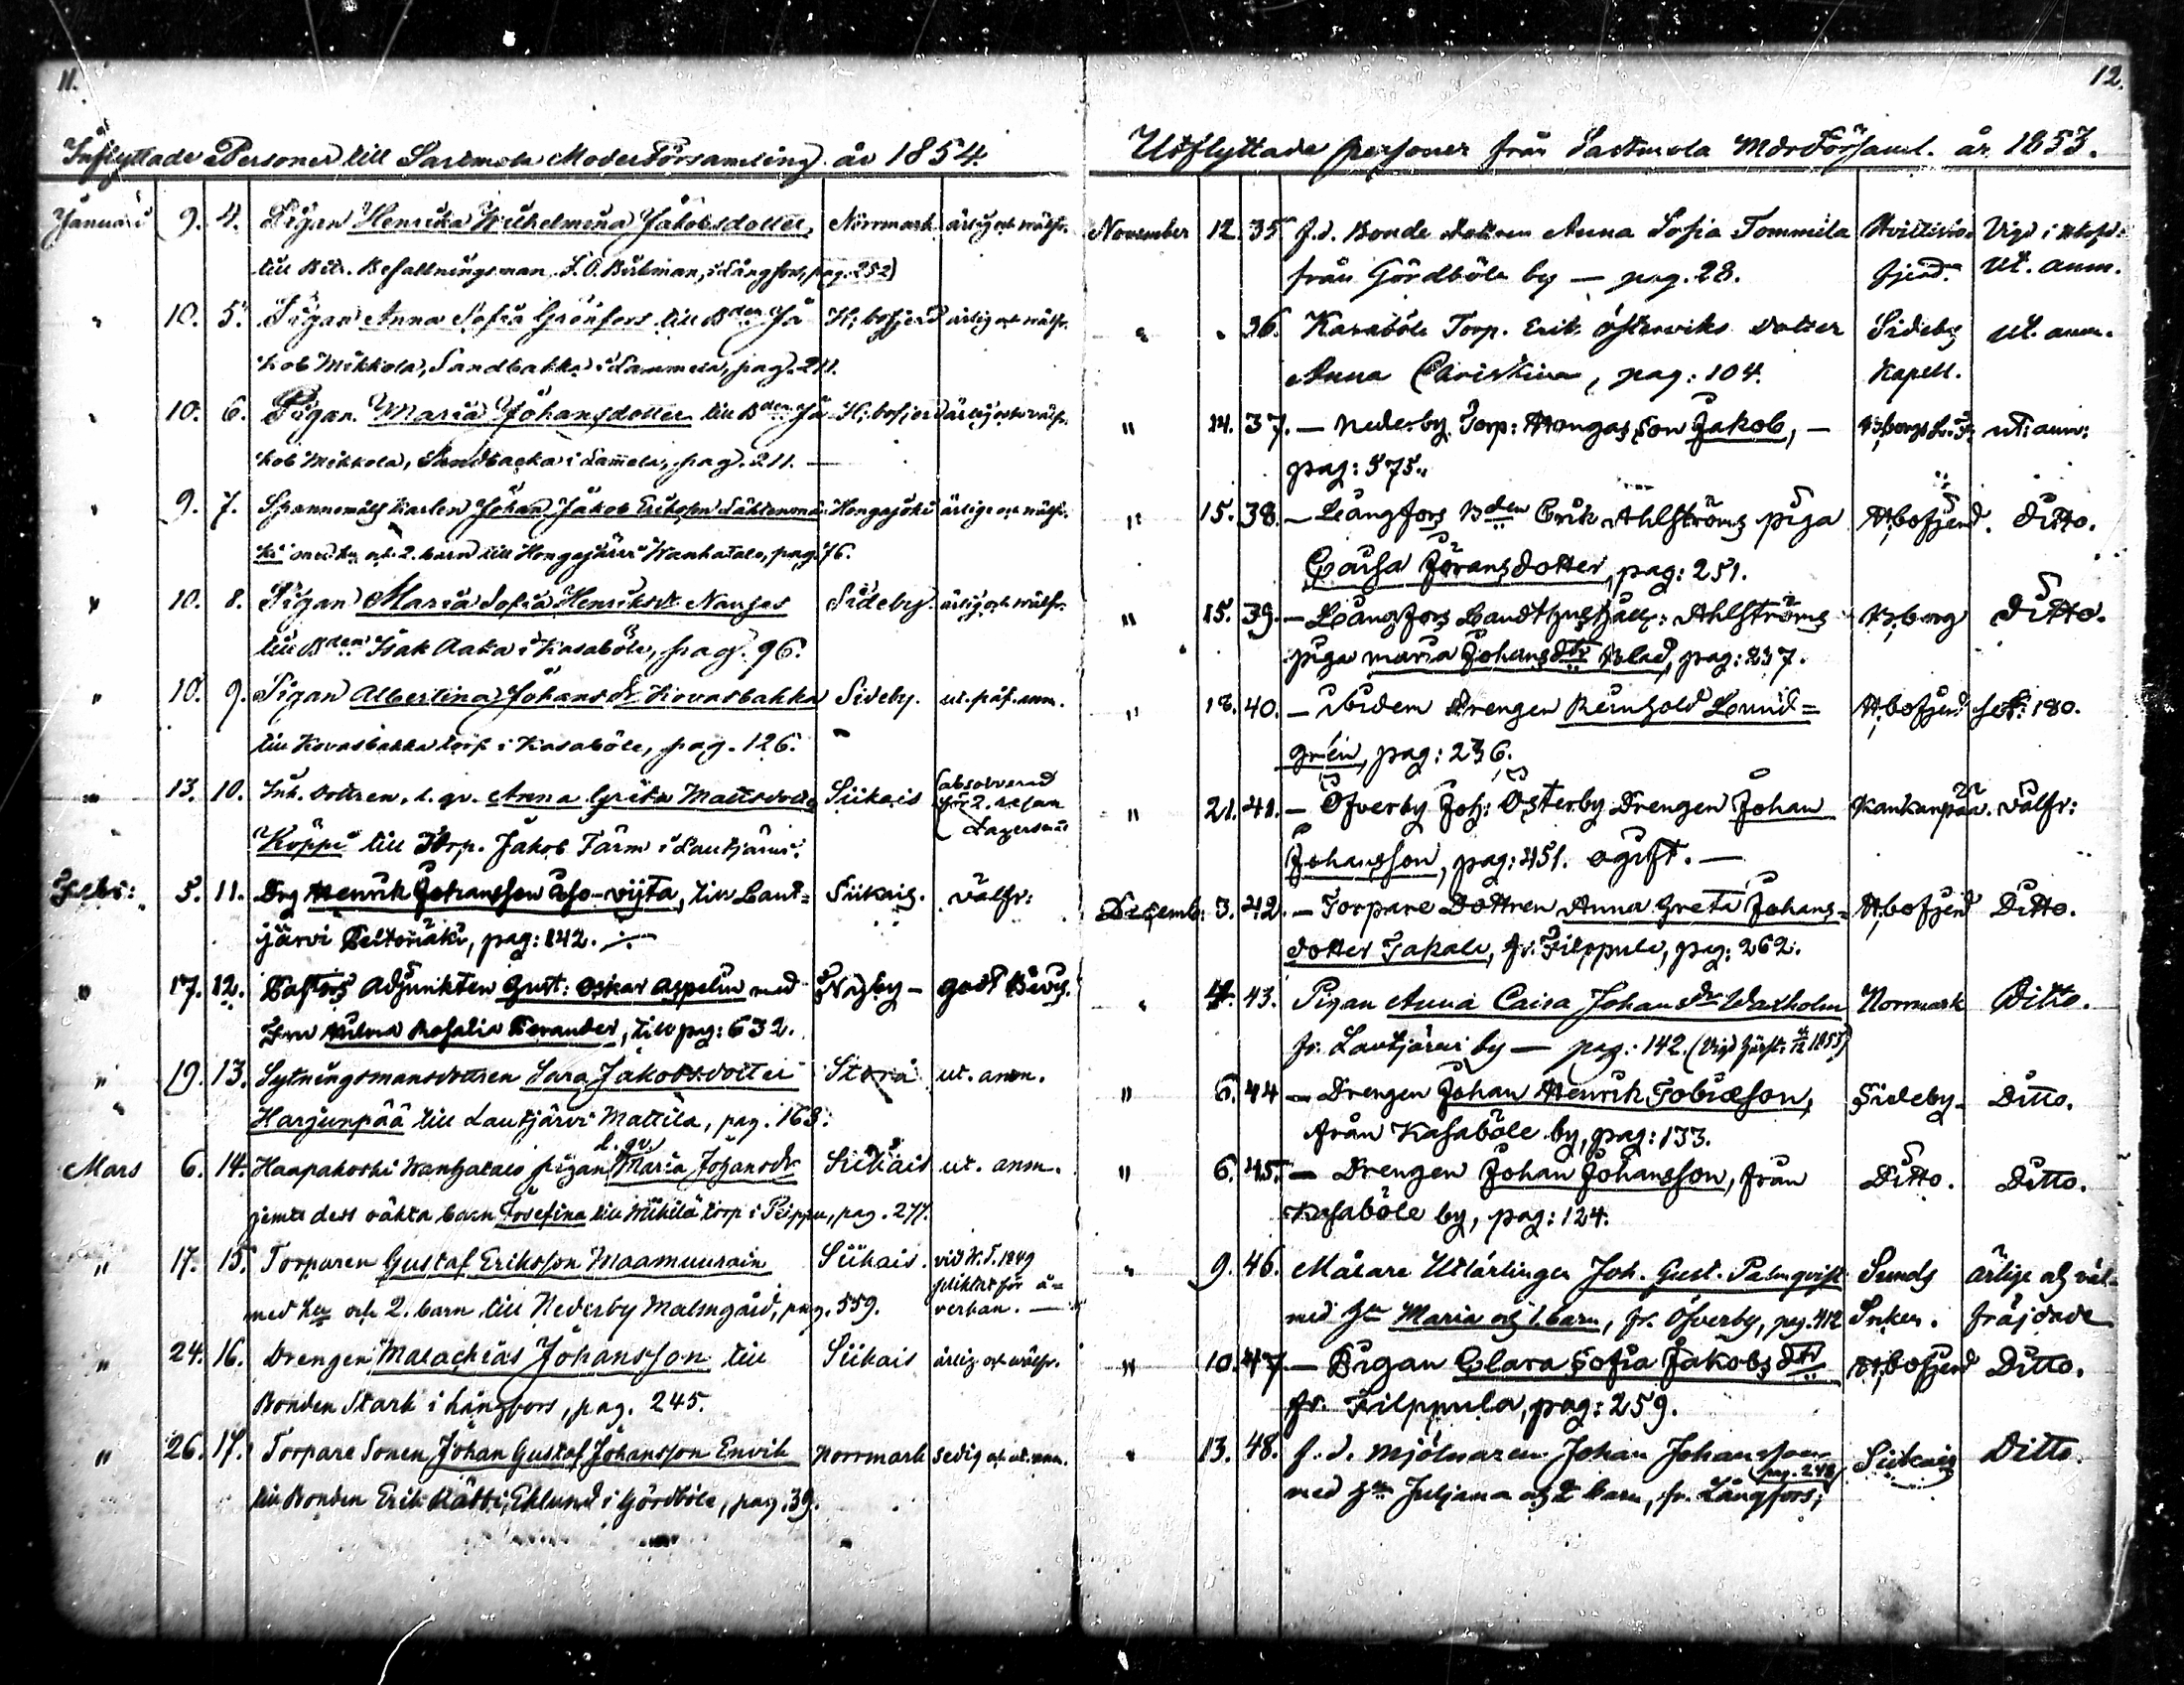 11.
Inflyttade Personer till Sastmola Moderförsamling år 1854.
Januari 9. 4. Pigan Henrika Wilhelmina Jakobsdotter, Norrmark ärlig och wälfr.
till Bitr. Befallningsman F. O. Bulman, i Långfors, pag. 252)
" 10. 5. Pigan Anna Sofia Grönfors till Bden Ja H;bofjerd ärlig och wälfr.
kob Mikkola, Sandbakka i Lammela, pag. 211.
" 10. 6. Pigan Maria Johansdotter till Bden Ja H;bofjerd ärlig och wälfr.
kob Mikkola, Sandbacka i Lamela, pag. 211. —
" 9. 7. Spannemåls Karlen Johan Jakob Eriksson Hongajoki ärlige och wälfr.
med hu och 2. barn till Hongajärvi Wanhatalo, pag. 76.
" 10. 8. Pigan Maria Sofia Henriksdr Naujas Sideby. ärlig och wälfr.
till Bden Isak Aaka i Kasaböle, pag. 96.
" 10. 9. Pigan Albertina Johansdr Kovasbakka Sideby. ut. påf. anm.
till Kovasbakka torp i Kasaböle, pag. 126.
" 13. 10. Inh. dottren, l. qv. Anna Greta Mattsdotter Siikais (absolverad för 2. resan Lägersmål
Koppi till Torp. Jakob Färm i Lautjärvi.
Febr: 5. 11. Drg Henrik Johansson Aso-vijta, till Laut= Siikais. välfr:
järvi Peltomäki, pag: 142. —
" 17. 12. Pastors Adjunkten Gust: Oskar Aspelin med Nagby — godt Bevis.
Fru Hilma Rosalia Perander, till pag: 632.
" 19. 13. Sytningsmansdottren Sara Jakobsdotter Storå ut. anm.
Harjunpää till Lautjärvi Mattila, pag. 163.
l. qv.
Mars 6. 14. Haapakoski Wanhatalo pigan Maria Johansdr Siikais ut. anm.
jemte dess oäkta barn Josefina till Mikilä torp i Peippu, pag. 277.
" 17. 15. Torparen Gustaf Eriksson Maamuurain Siikais. vid H. T. 1849 pliktat för å=
med hu och 2. barn till Nederby Malmgård, pag. 559. verkan. —
" 24. 16. Drengen Malachias Johansson till Siikais ärlig och wälfr.
Bonden Stark i Långfors, pag. 245.
" 26. 17. Torpare Sonen Johan Gustaf Johansson Envik Norrmark sedig och ut. anm.
till Bonden Erik Rätti, Eklund i Gördböle, pag. 39.
12.
Utflyttade personer från Sastmola Moderförsaml. år 1853.
November 12. 35. f. d. Bonde dottren Anna Sofia Tommila Hvittisbo= Vigd i
från Gördböle by — pag. 28. fjerd. ut. anm.
" " 36. Kasaböle Torp. Erik Österviks dotter Sideby ut. anm.
Anna Christina, pag: 104. Kapell.
" 14. 37. — Nederby Torp: Hangas son Jakob, — ut: anm:
pag: 575.
" 15. 38. — Långfors Bden Erik Ahlströms piga H;bofjerd. Ditto.
Cajsa Göransdotter, pag: 251.
" 15. 39. — Långfors Landthushåll: Ahlströms B;borg Ditto.
piga Maria Johansdtr Blad, pag: 237.
" 18. 40. — Ibidem drengen Reinhold Lund= H;bofjerd 180.
grén, pag: 236.
" 21. 41. — Öfverby Joh: Österby Drengen Johan Kankanpää. välfr:
Johansson, pag: 451. ogift. —
Decemb: 3. 42. — Torpare Dottren Anna Greta Johans= H;bofjerd Ditto.
dotter Takala, fr. Filppula, pag: 262.
" 4. 43. Pigan Anna Caisa Johansdr Waxholm Norrmark Ditto.
fr. Lautjärvi by — pag: 142. (Vigd Hjelt: 4/12 1853)
" 6. 44 — Drengen Johan Henrik Tobiasson, Sideby — Ditto.
från Kasaböle by, pag: 133.
" 6. 45. — Drengen Johan Johansson, från Ditto. Ditto.
Kasaböle by, pag: 124.
" 9. 46. Målare Utlärlingen Joh. Gust. Palmqvist Sunds ärlige och väl=
med hu Maria och 1. barn, fr. Öfverby, pag. 412 Socken. fräjdade
" 10. 47 — Pigan Clara Sofia Jakobsdtr H;bofjerd Ditto.
fr. Filppula, pag: 259.
" 13. 48. f. d. Mjölnaren Johan Johansson Siikais Ditto.
pag. 248
med hu Juliana och 2 barn, fr. Långfors;